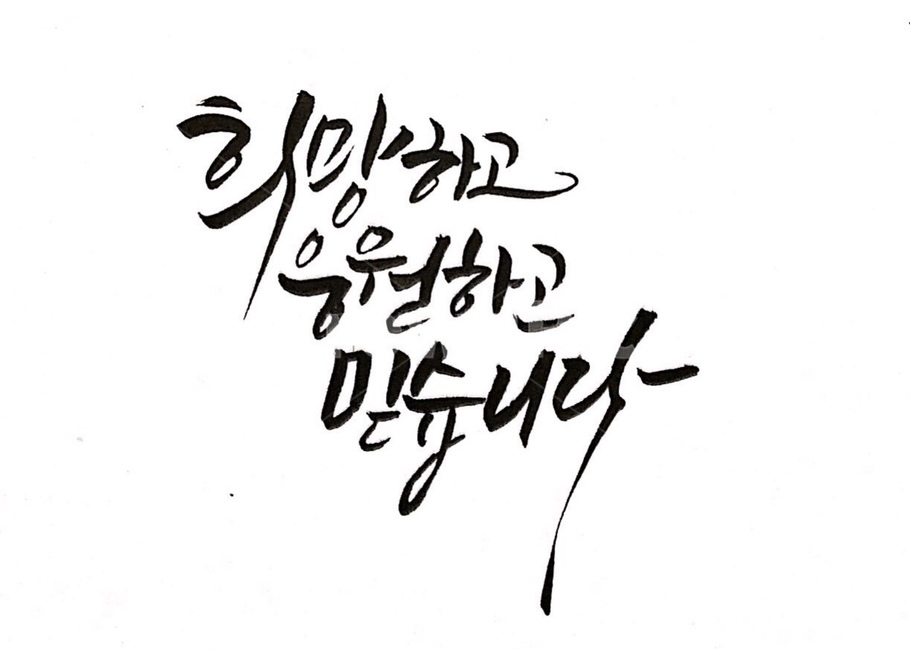 희망하고
응원하고
믿습니다